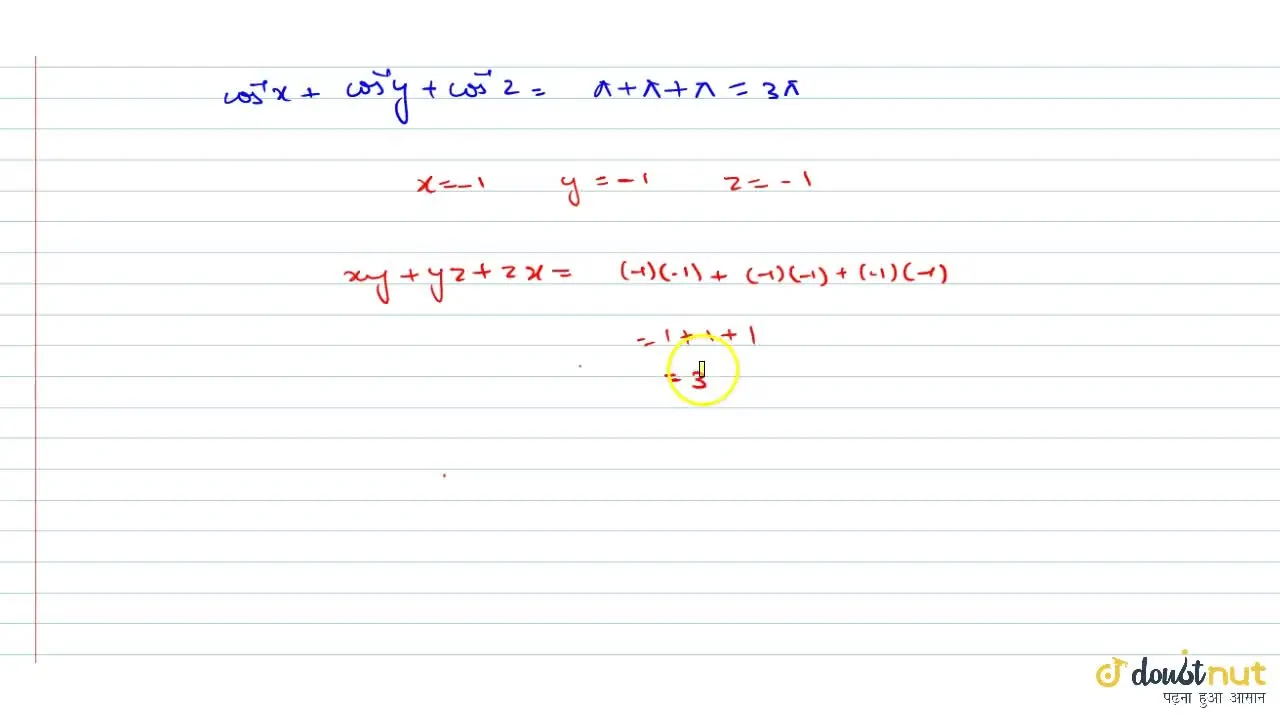 cos⁻¹x + cos⁻¹y + cos⁻¹z = π + π + π = 3π
x = -1 y = -1 z = -1
xy + yz + zx = (-1)(-1) + (-1)(-1) + (-1)(-1)
= 1 + 1 + 1
= 3
doubtnut
पढ़ना हुआ आसान